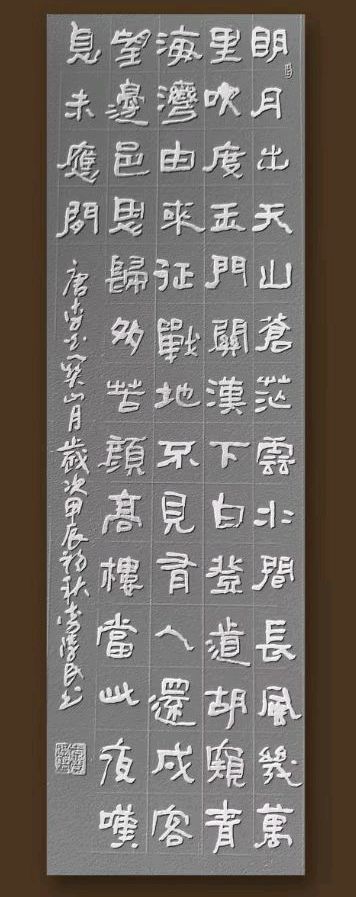 明月出天山蒼茫雲水間長風幾萬
里吹度玉門關漢下白登道胡窺青
海灣由來征戰地不見有人還戍客
望邊邑思歸多苦顔高樓當此夜嘆
息未應間
唐李白關山月歲次甲辰初秋李民书